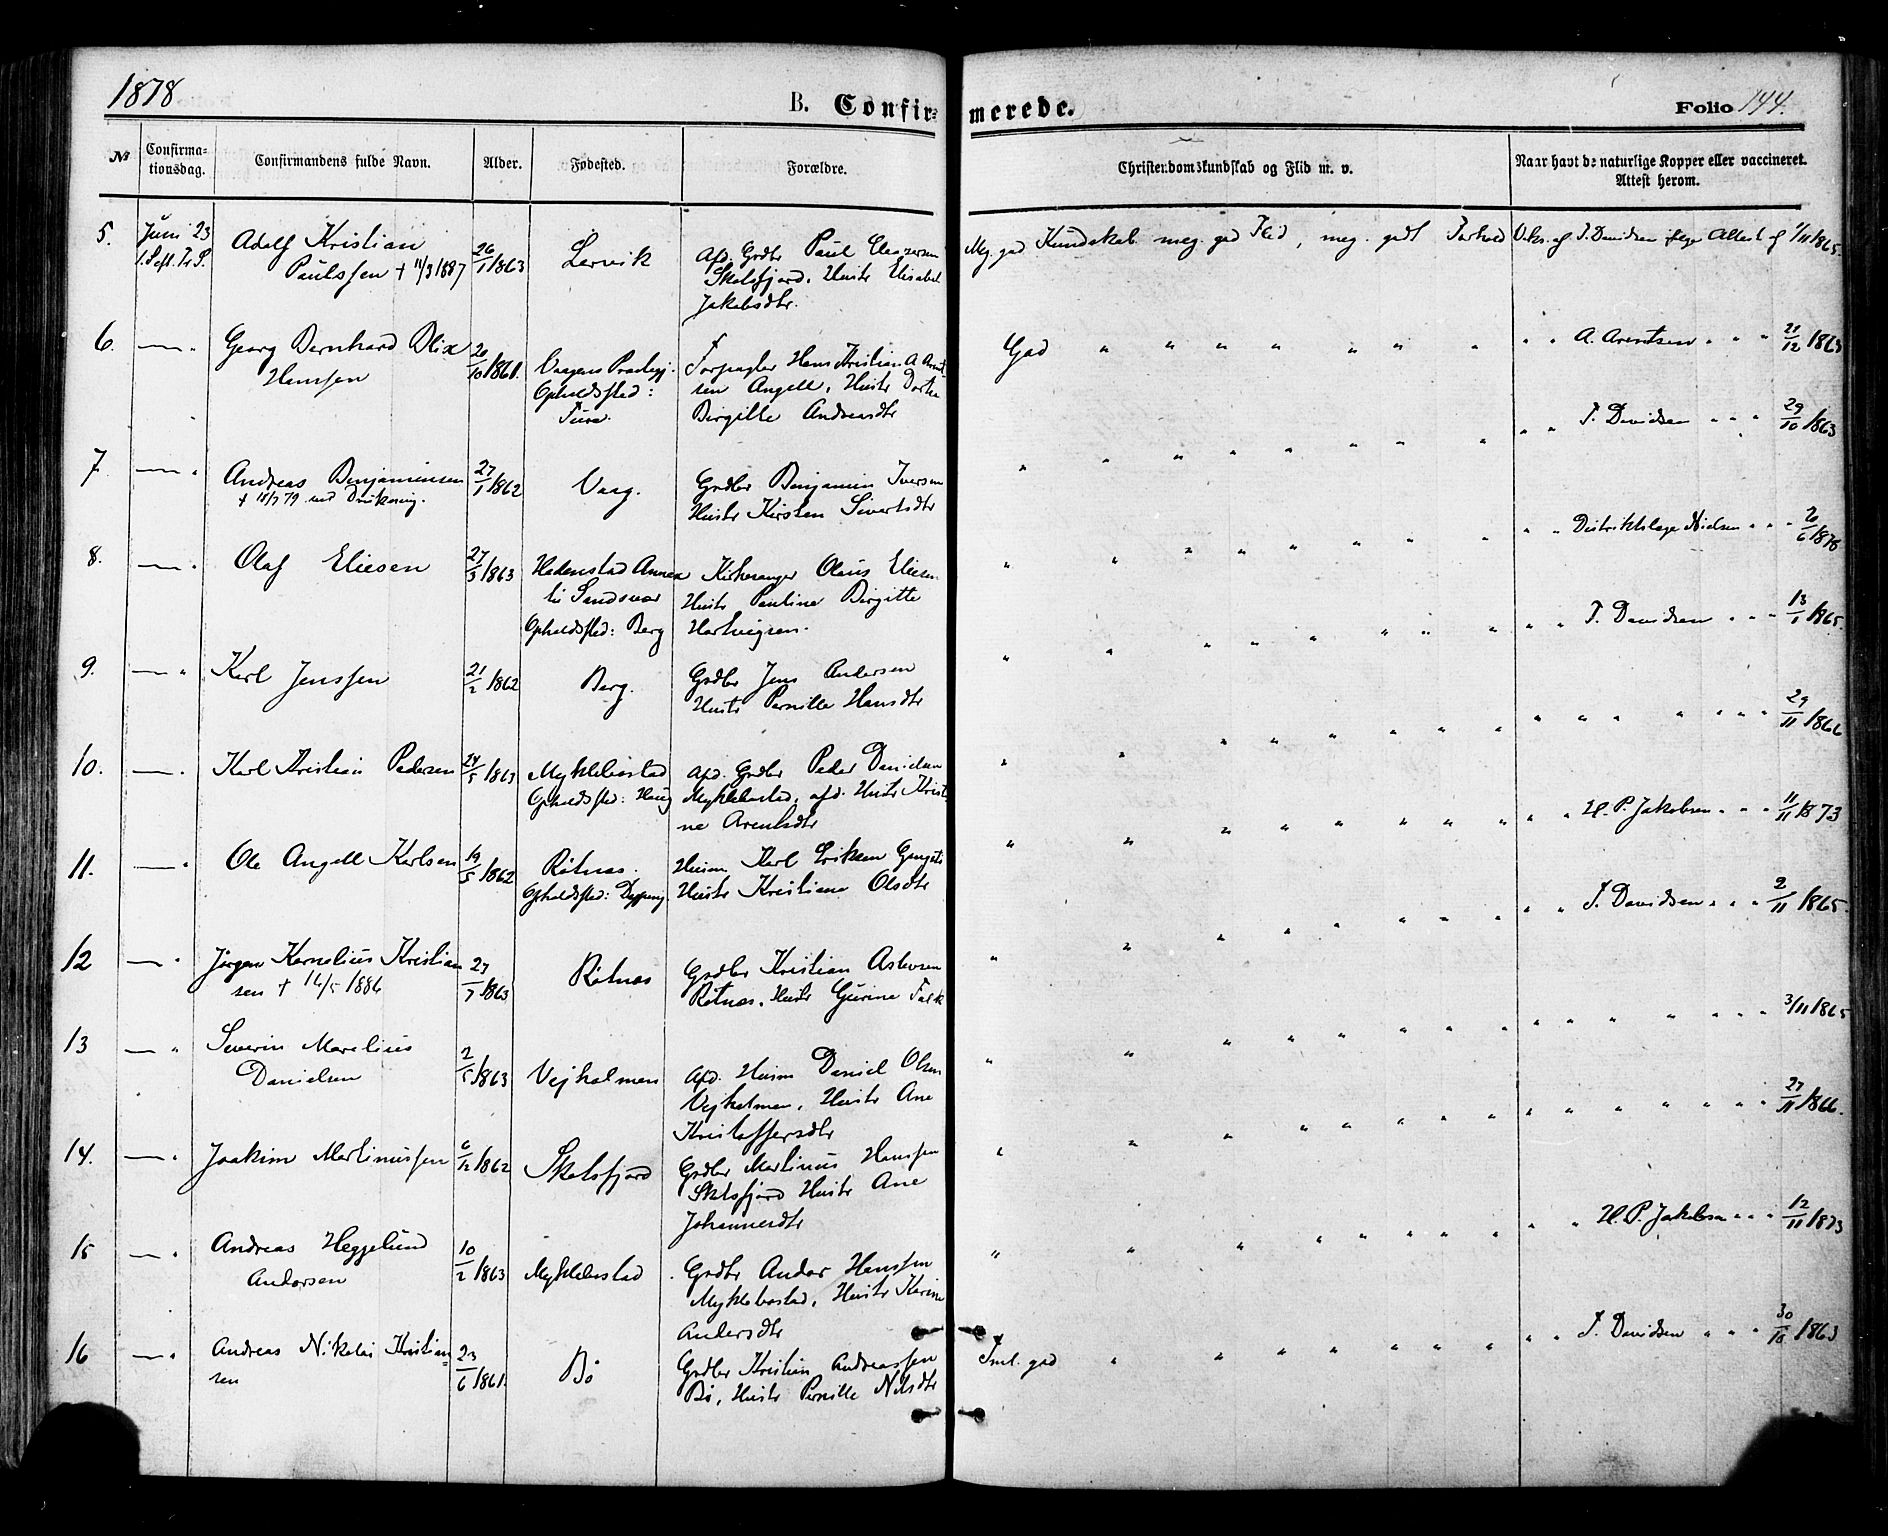 1878
B. Confir=
merede.
Folio 144.
No
Confirma=
tionsdag.
Confirmandens fulde Navn.
Alder.
Fødested.
Forældre.
Christendomskundskab og Flid m. v.
Naar havt de naturlige Kopper eller vaccineret.
Attest herom.
5.
Juni 23
Adolf Kristian
Paulssen + 11/3 1887
26/1 1863
Lervik
Afd. Grdbr Paul
Skotsfjord. Hustr Elisabet
Jakobsdtr.
Mg. god Kundskab meg. god Flid, meg. godt Forhold
Vaks. af T. Davidsen ifølge Attest af 1/11 1865.
6.
Georg Bernhard Blix
Hanssen
26/10 1861.
Opholdssted:
Hans Kristian A. Arent
sen Angell, Hustr Dorte
Birgitte Andreasdtr
God " " " " " " "
" " A. Arentsen " " " 21/12 1863
7.
Andreas Benjaminsen
+ 18/7 79 ved Drukning.
27/1 1862
Vaag.
Grdbr Benjamin Iversen
Hustr Kirsten Sivertsdtr
" " T. Davidsen " " " 29/10 1863
8.
Olaf Eliesen
27/3 1863
Hedenstad Annex
til Sandsvær
Opholdsted: Berg
Kirkesanger Olaus Eliesen
Hustr Pauline Birgitte
Hartvigsen.
" " Distriktslæge Nielsen " " " 26/6 1878
9.
Karl Jenssen
21/2 1862
Berg.
Grdbr Jens Andersen
Hustr Pernille Hansdtr
" " T. Davidsen " " " 13/1 1865.
10.
Karl Kristian Pedersen
24/5 1863
Myklebostad
Opholdsted: Haug
afd. Grdbr Peder Danielsen
Myklebostad, afd. Hustr Kristi
ne Arentsdtr
" " " " " " " 29/11 1866
11.
Ole Angell Karlsen
19/5 1862
Røtnas.
Opholdsted:
Husm Karl Eriksen
Hustr Kristiane Olsdtr
" " H. P. Jakobsen " " " 11/11 1873
12
Jørgen Kornelius Kristian
sen + 16/5 1886
27/7 1863
Røtnas
Grdbr Kristian Astevsen
Røtnas. Hustr Gurine Falk
" " T. Davidsen " " " 2/11 1865.
13
Severin Marelius
Danielsen
2/5 1863
Vejholmen
Afd. Husm Daniel Olsen
Vejholmen, Hustr Ane
Kristoffersdtr
" " " " " " " 3/11 1865
14.
Joakim Martinussen
6/12 1862
Skotsfjord
Grdbr Martinus Hanssen
Skotsfjord Hustr Ane
Johannesdtr
" " " " " " " 27/11 1866.
15
Andreas Heggelund
Andorsen
10/2 1863
Myklebostad
Grdbr Andor Hanssen
Myklebostad, Hustr Karine
Andersdtr
" " H. P. Jakobsen " " " 12/11 1873
16
Andreas Nikolai Kristian=
sen
23/6 1861.
Bø
Grdbr Kristian Andreassen
Bø, Hustr Pernille Nilsdtr
Tml. god " " " " " " "
" " T. Davidsen " " " 30/10 1863